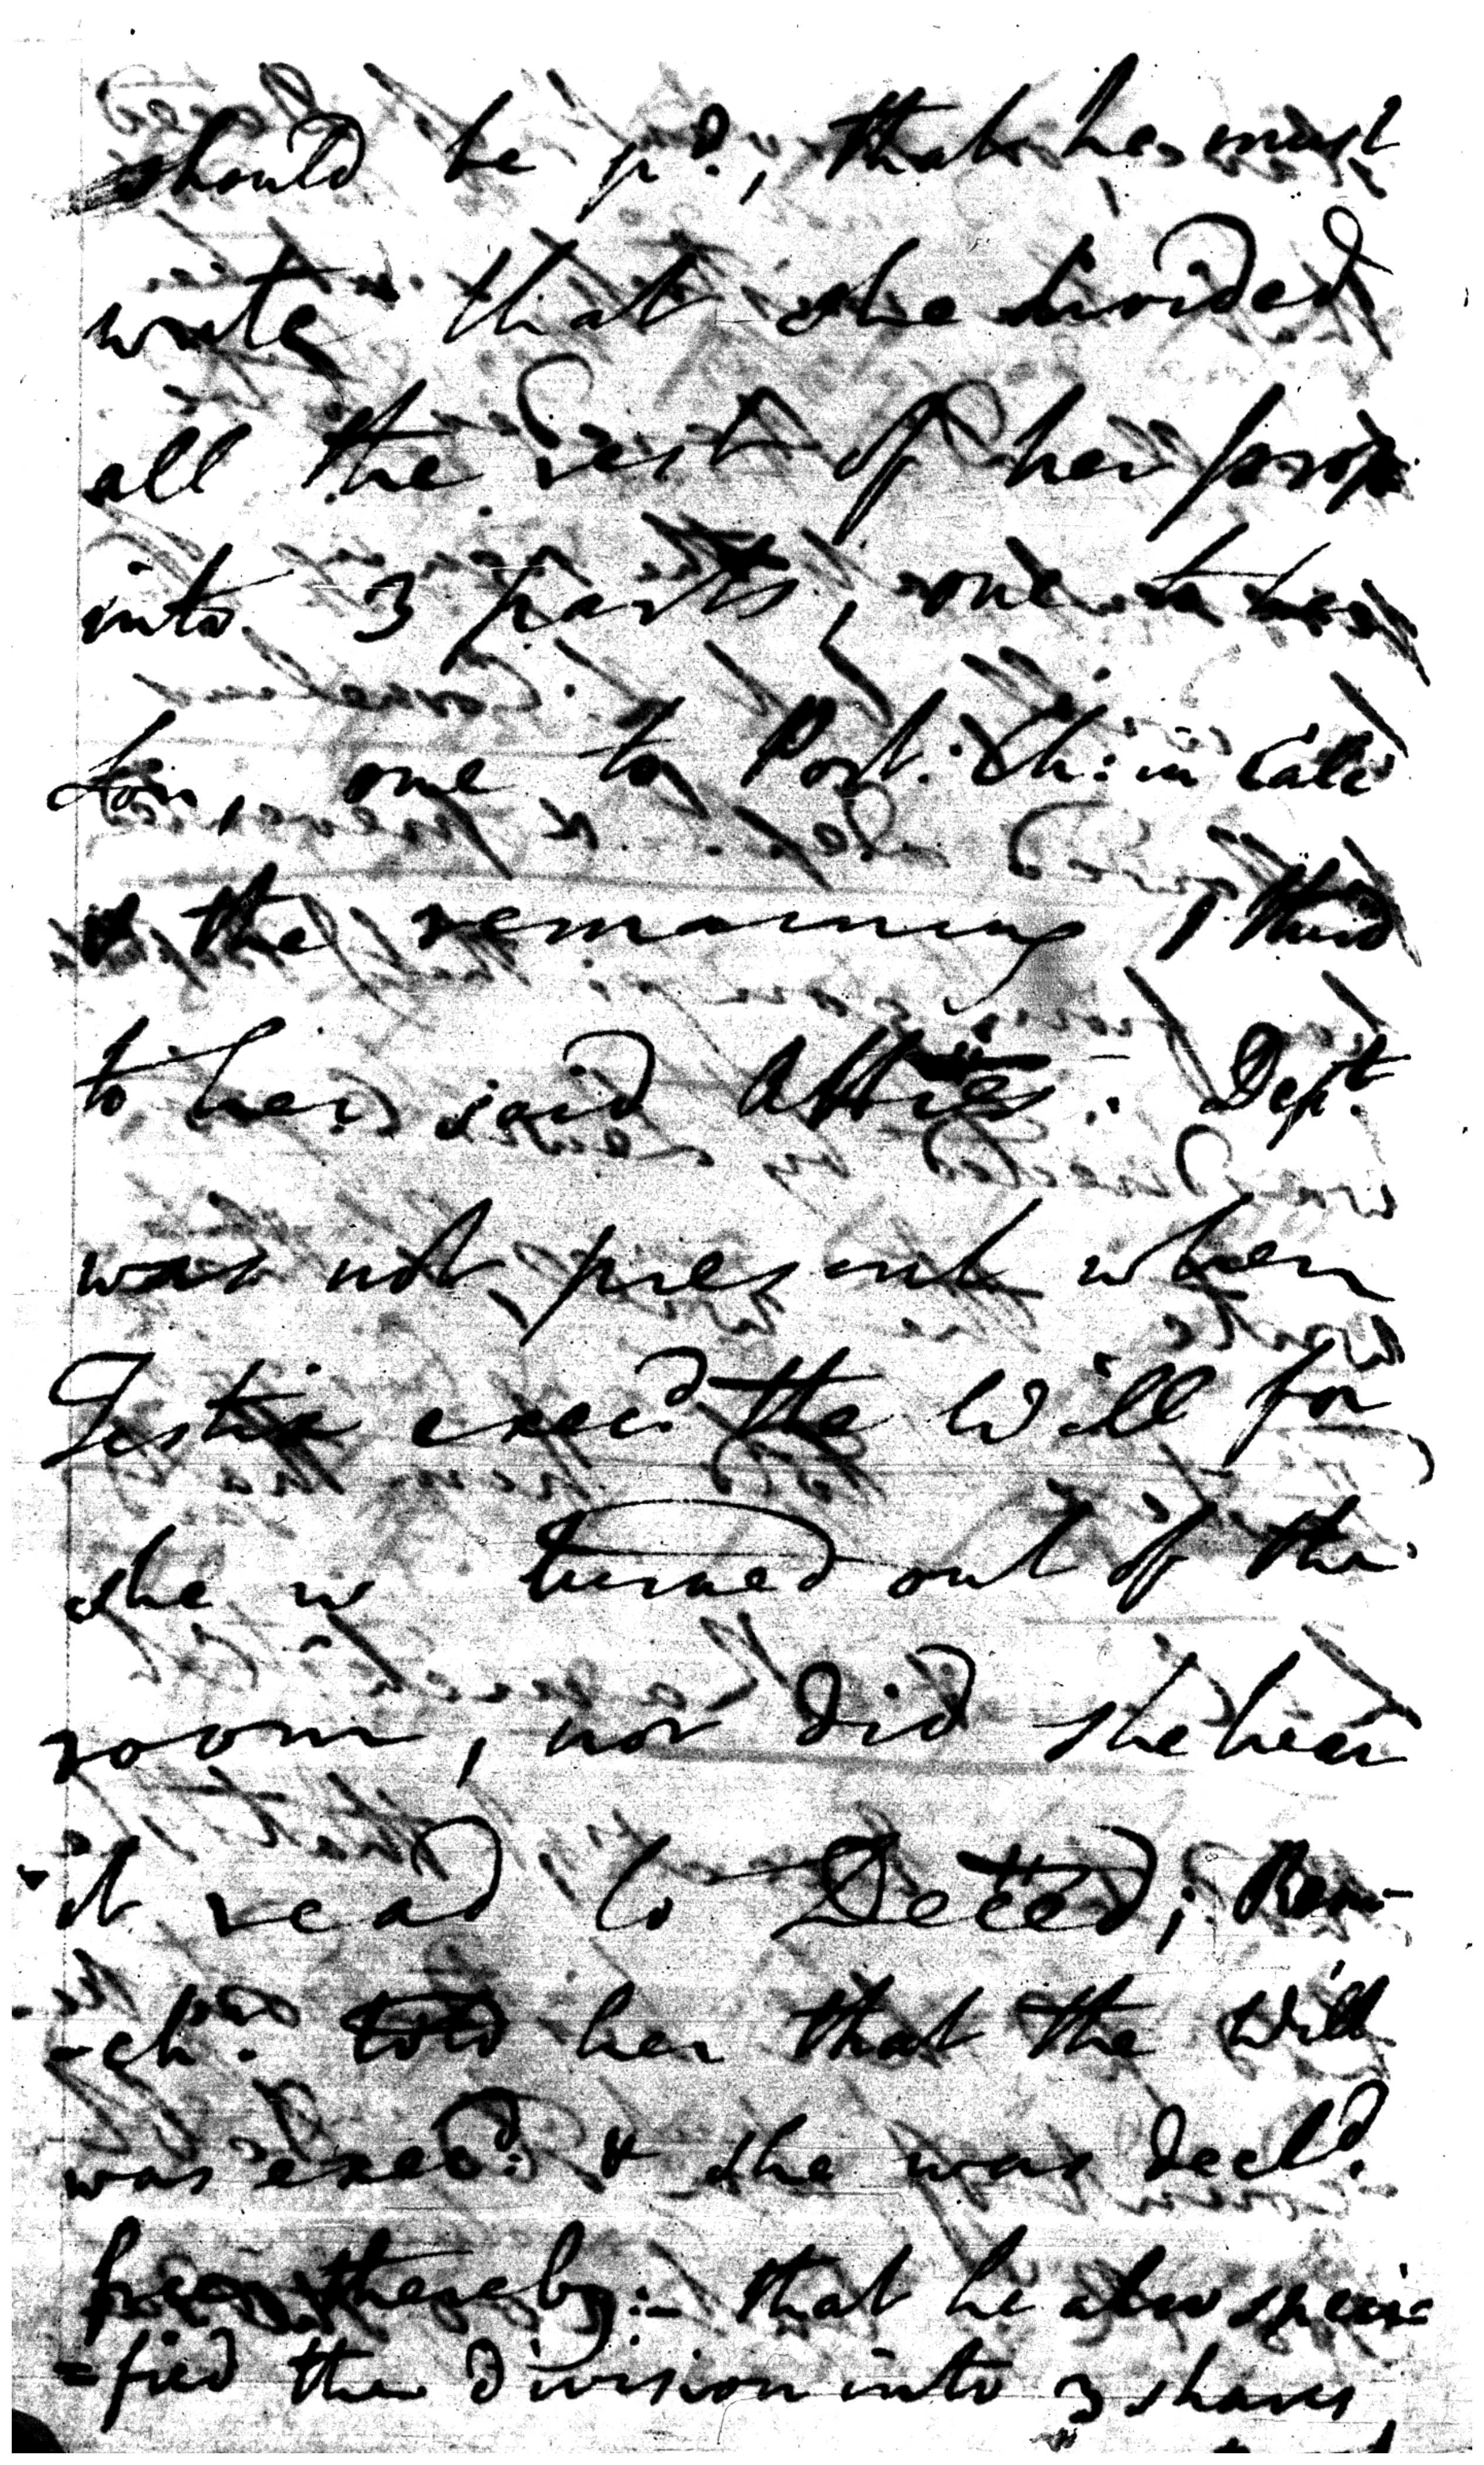 should be pd., that he must
write that she divided
all the rest of her prop
into 3 parts, one to her
Son, one to Port. Ch: in Calc
& the remaining 1 third
to her said Atties. Dept.
was not present when
Testix execd. the Will for
she w turned out of the
room, nor did she hear
it read to Deced;
-chd. told her that the Will
was execd. & she was decld.
free thereby:- that he also speci=
=fied the division into 3 shares,